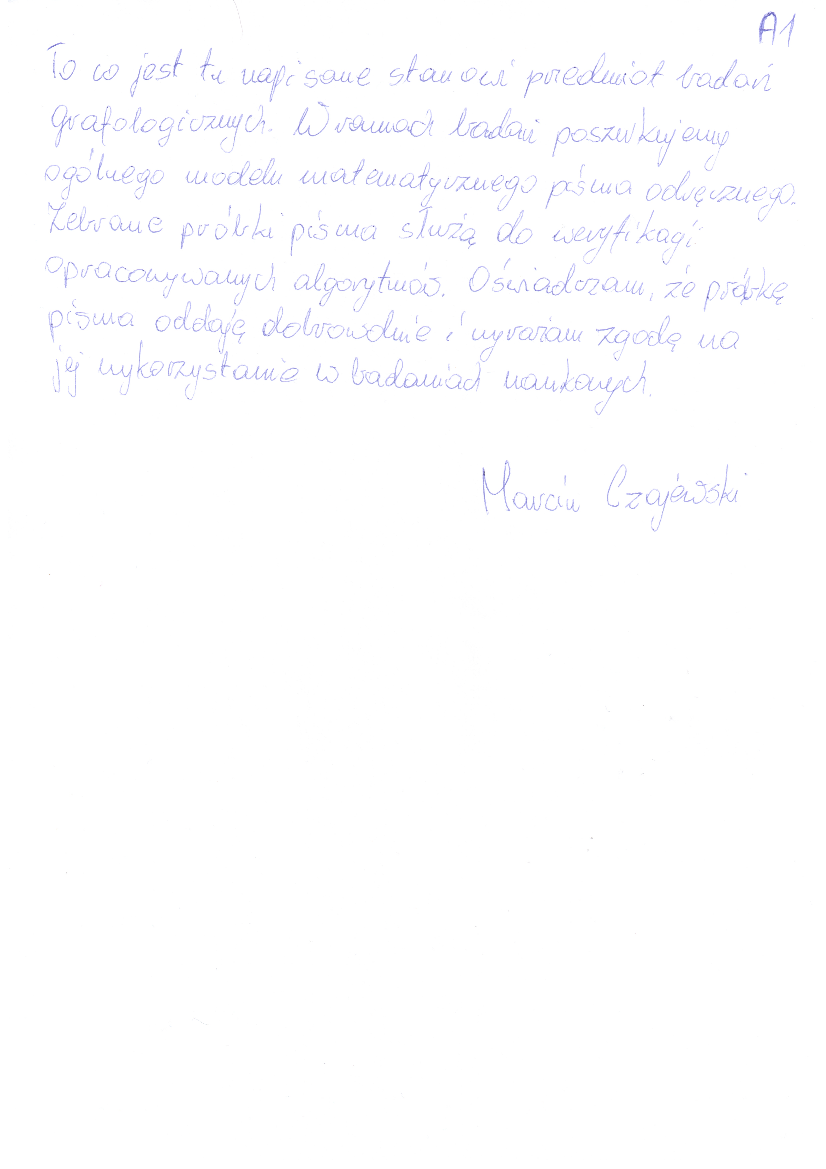 A1
To co jest tu napisane stanowi przedmiot badań
grafologicznych. W ramach badań poszukujemy
ogólnego modelu matematycznego pisma odręcznego.
Zebrane próbki pisma służą do weryfikacji
opracowywanych algorytmów. Oświadczam, że próbkę
pisma oddaję dobrowolnie i wyrażam zgodę na
jej wykorzystanie w badaniach naukowych.
Marcin Czajewski